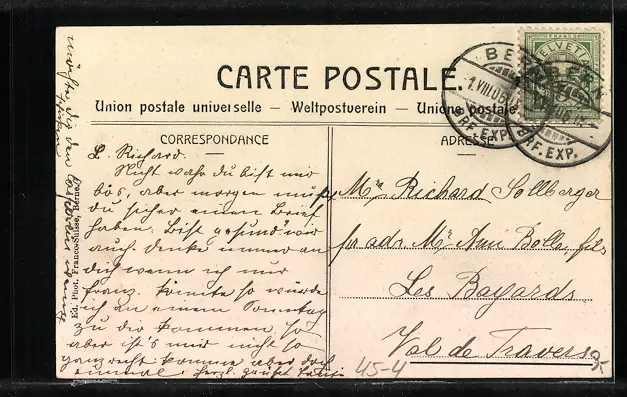 CARTE POSTALE.
Union postale universelle — Weltpostverein — Unione postale
HELVETIA
FRANCO
BERN
1.VIII.06
BRF. EXP.
BERN
BRF. EXP.
CORRESPONDANCE
ADRESSE
L. Richard.
Nicht wahr du bist mir
bös, aber morgen mußt
du sicher einen Brief
haben. Bist gesund wir
auch. Denke immer an
dich wenn ich nur
franz. könnte so würde
ich an einem Sonntag
zu dir kommen, so
aber ist's mir nicht so
ganz recht komme aber doch
einmal. Herzl. grüßt
Mr Richard Sollberger
pr adr. Mr Ami Bolle, fils
Les Bayards
Val de Travers
Ed. Phot. Franco-Suisse, Berne.
45-4